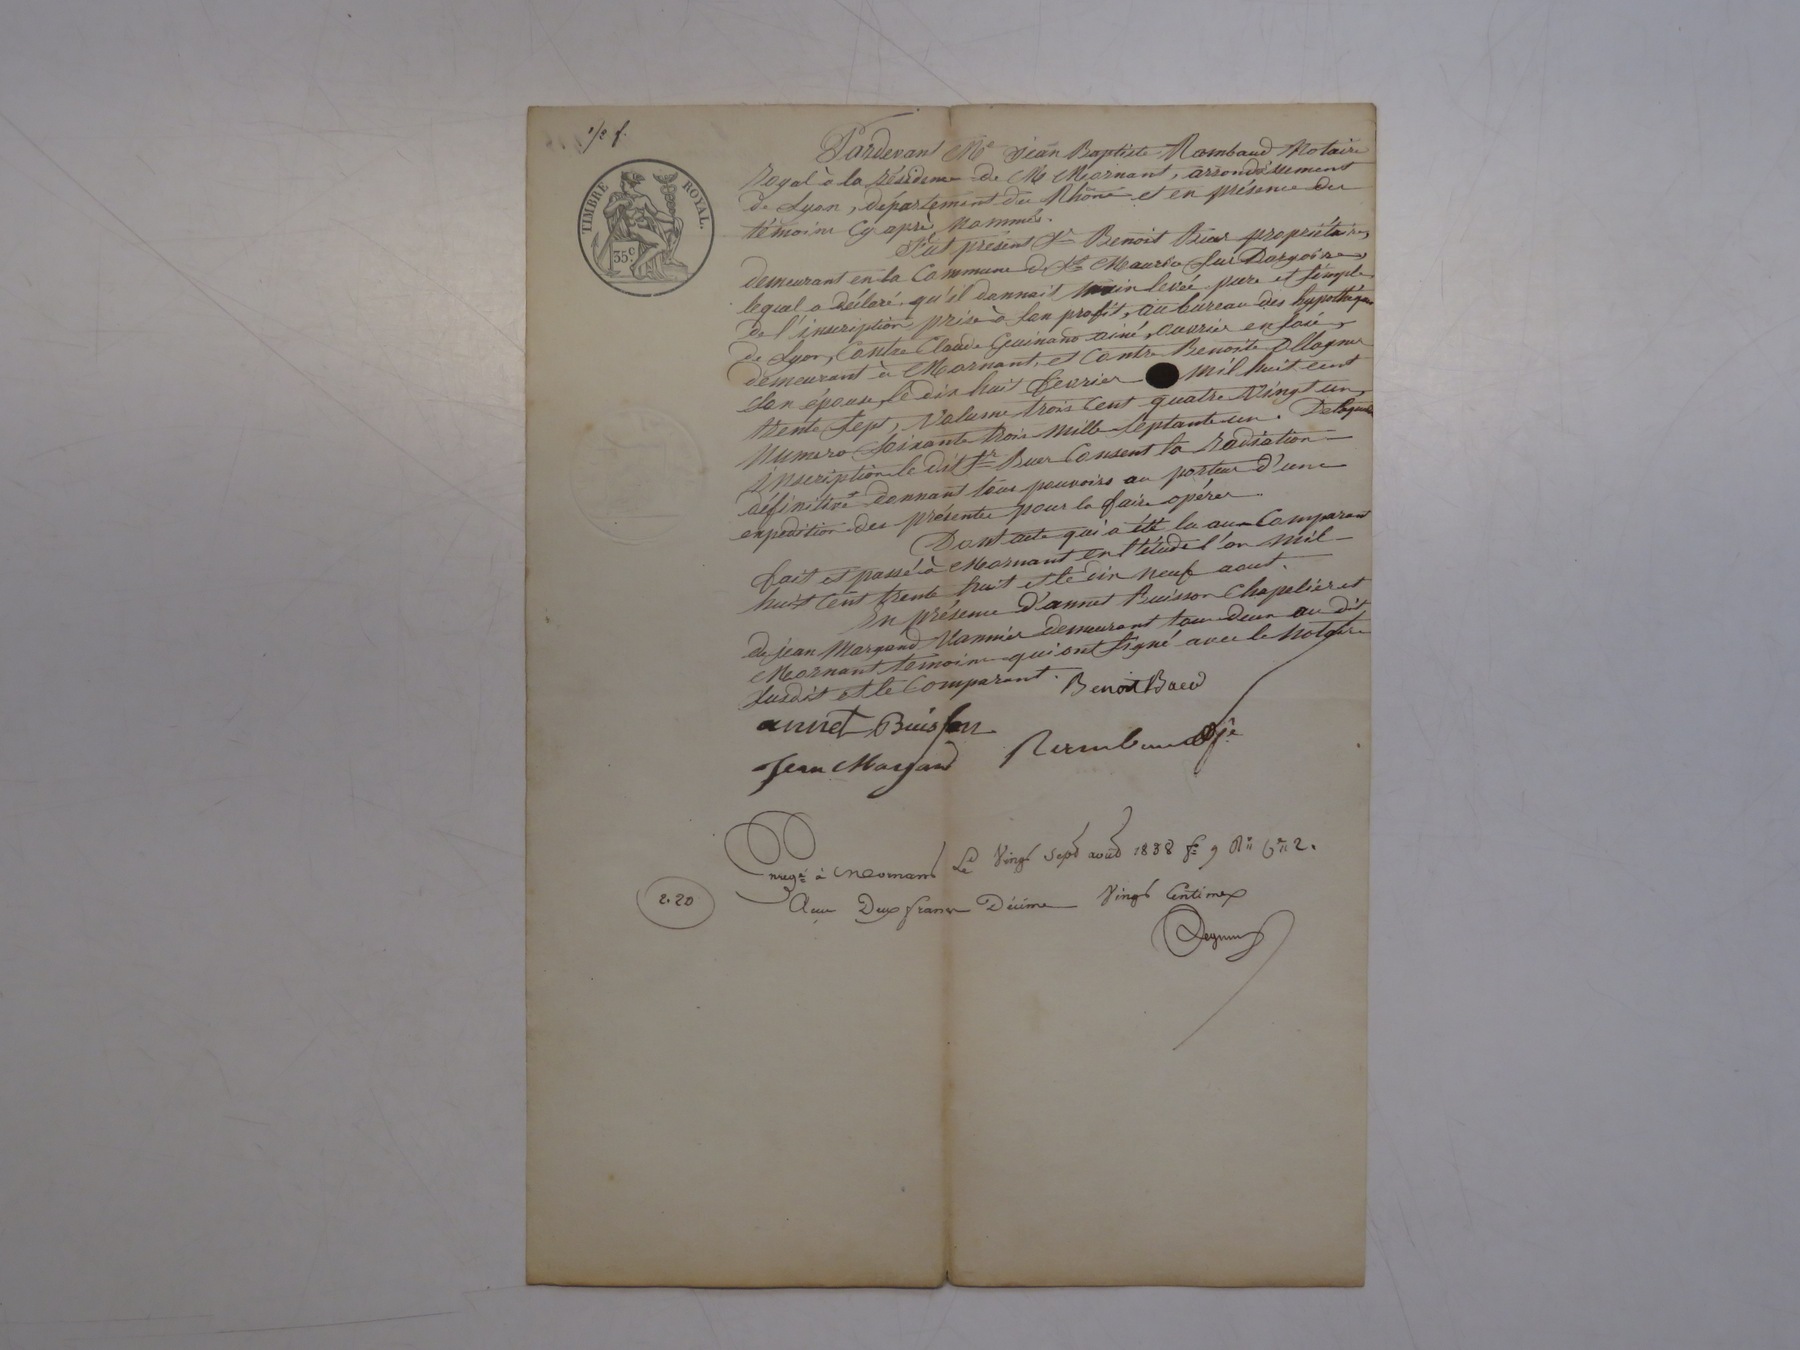 1/2 f.
TIMBRE ROYAL.
35 c.
Pardevant Me Jean Baptiste Rambaud Notaire
Royal à la résidence de Mornant, arrondissement
de Lyon, département du Rhône et en présence des
témoins cy après nommés.
Fut présent Sr Benoit propriétaire,
demeurant en la Commune de St Maurice Sur Dargoire,
lequel a déclaré qu'il donnait main levée pure et simple
de l'inscription prise à son profit, au bureau des hypothèques
de Lyon, Contre Claude Guinand ainé, ouvrier en soie,
demeurant à Mornant, et Contre Benoite Ollagner
son épouse, le dix huit fevrier mil huit cent
trente sept, Volume trois cent quatre vingt un,
Numero soixante trois mille septante un. De laquelle
inscription le dit Sr Consent la radiation
définitive donnant tous pouvoirs au porteur d'une
expedition des présentes pour la faire opérer.
Dont acte qui a été lu au Comparant
fait et passé à Mornant en l'étude l'an mil
huit cent trente huit et le dix neuf aout.
En présence d'annet Buisson Chapelier et
de jean Margand Vannier demeurant tous deux au dit
Mornant témoins qui ont signé avec le Notaire
susdit et le Comparant.
Benoit
annet Buisson
Jean Margand
Rambaud
Enregé à Mornant Le Vingt sept août 1838 fo 9 Ro Ce 2.
Reçu Deux francs Décime Vingt Centimes
2.20